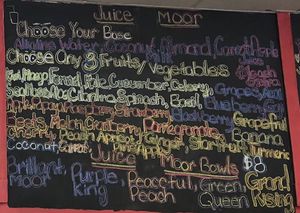 Juice Moor
Choose Your Base
Alkaline Water, Coconut, Almond, Carrot, Apple
Choose Any 3 Fruits/Vegetables
Juice
Fennel, Kale, Cucumber, Celery, Grapes
Cilantro, Spinach, Basil, Blueberry
Strawberry, Blackberry, Grapefruit
Beets, Melon, Cranberry, Pomegranate, Banana
Cherry, Peach, Apple, Ginger, Starfruit, Turmeric
Coconut, Carrot, Pineapple
Juice Moor Bowls $8
Brilliant Moor
Purple King
Peaceful Peach
Green Queen
Grand Rising